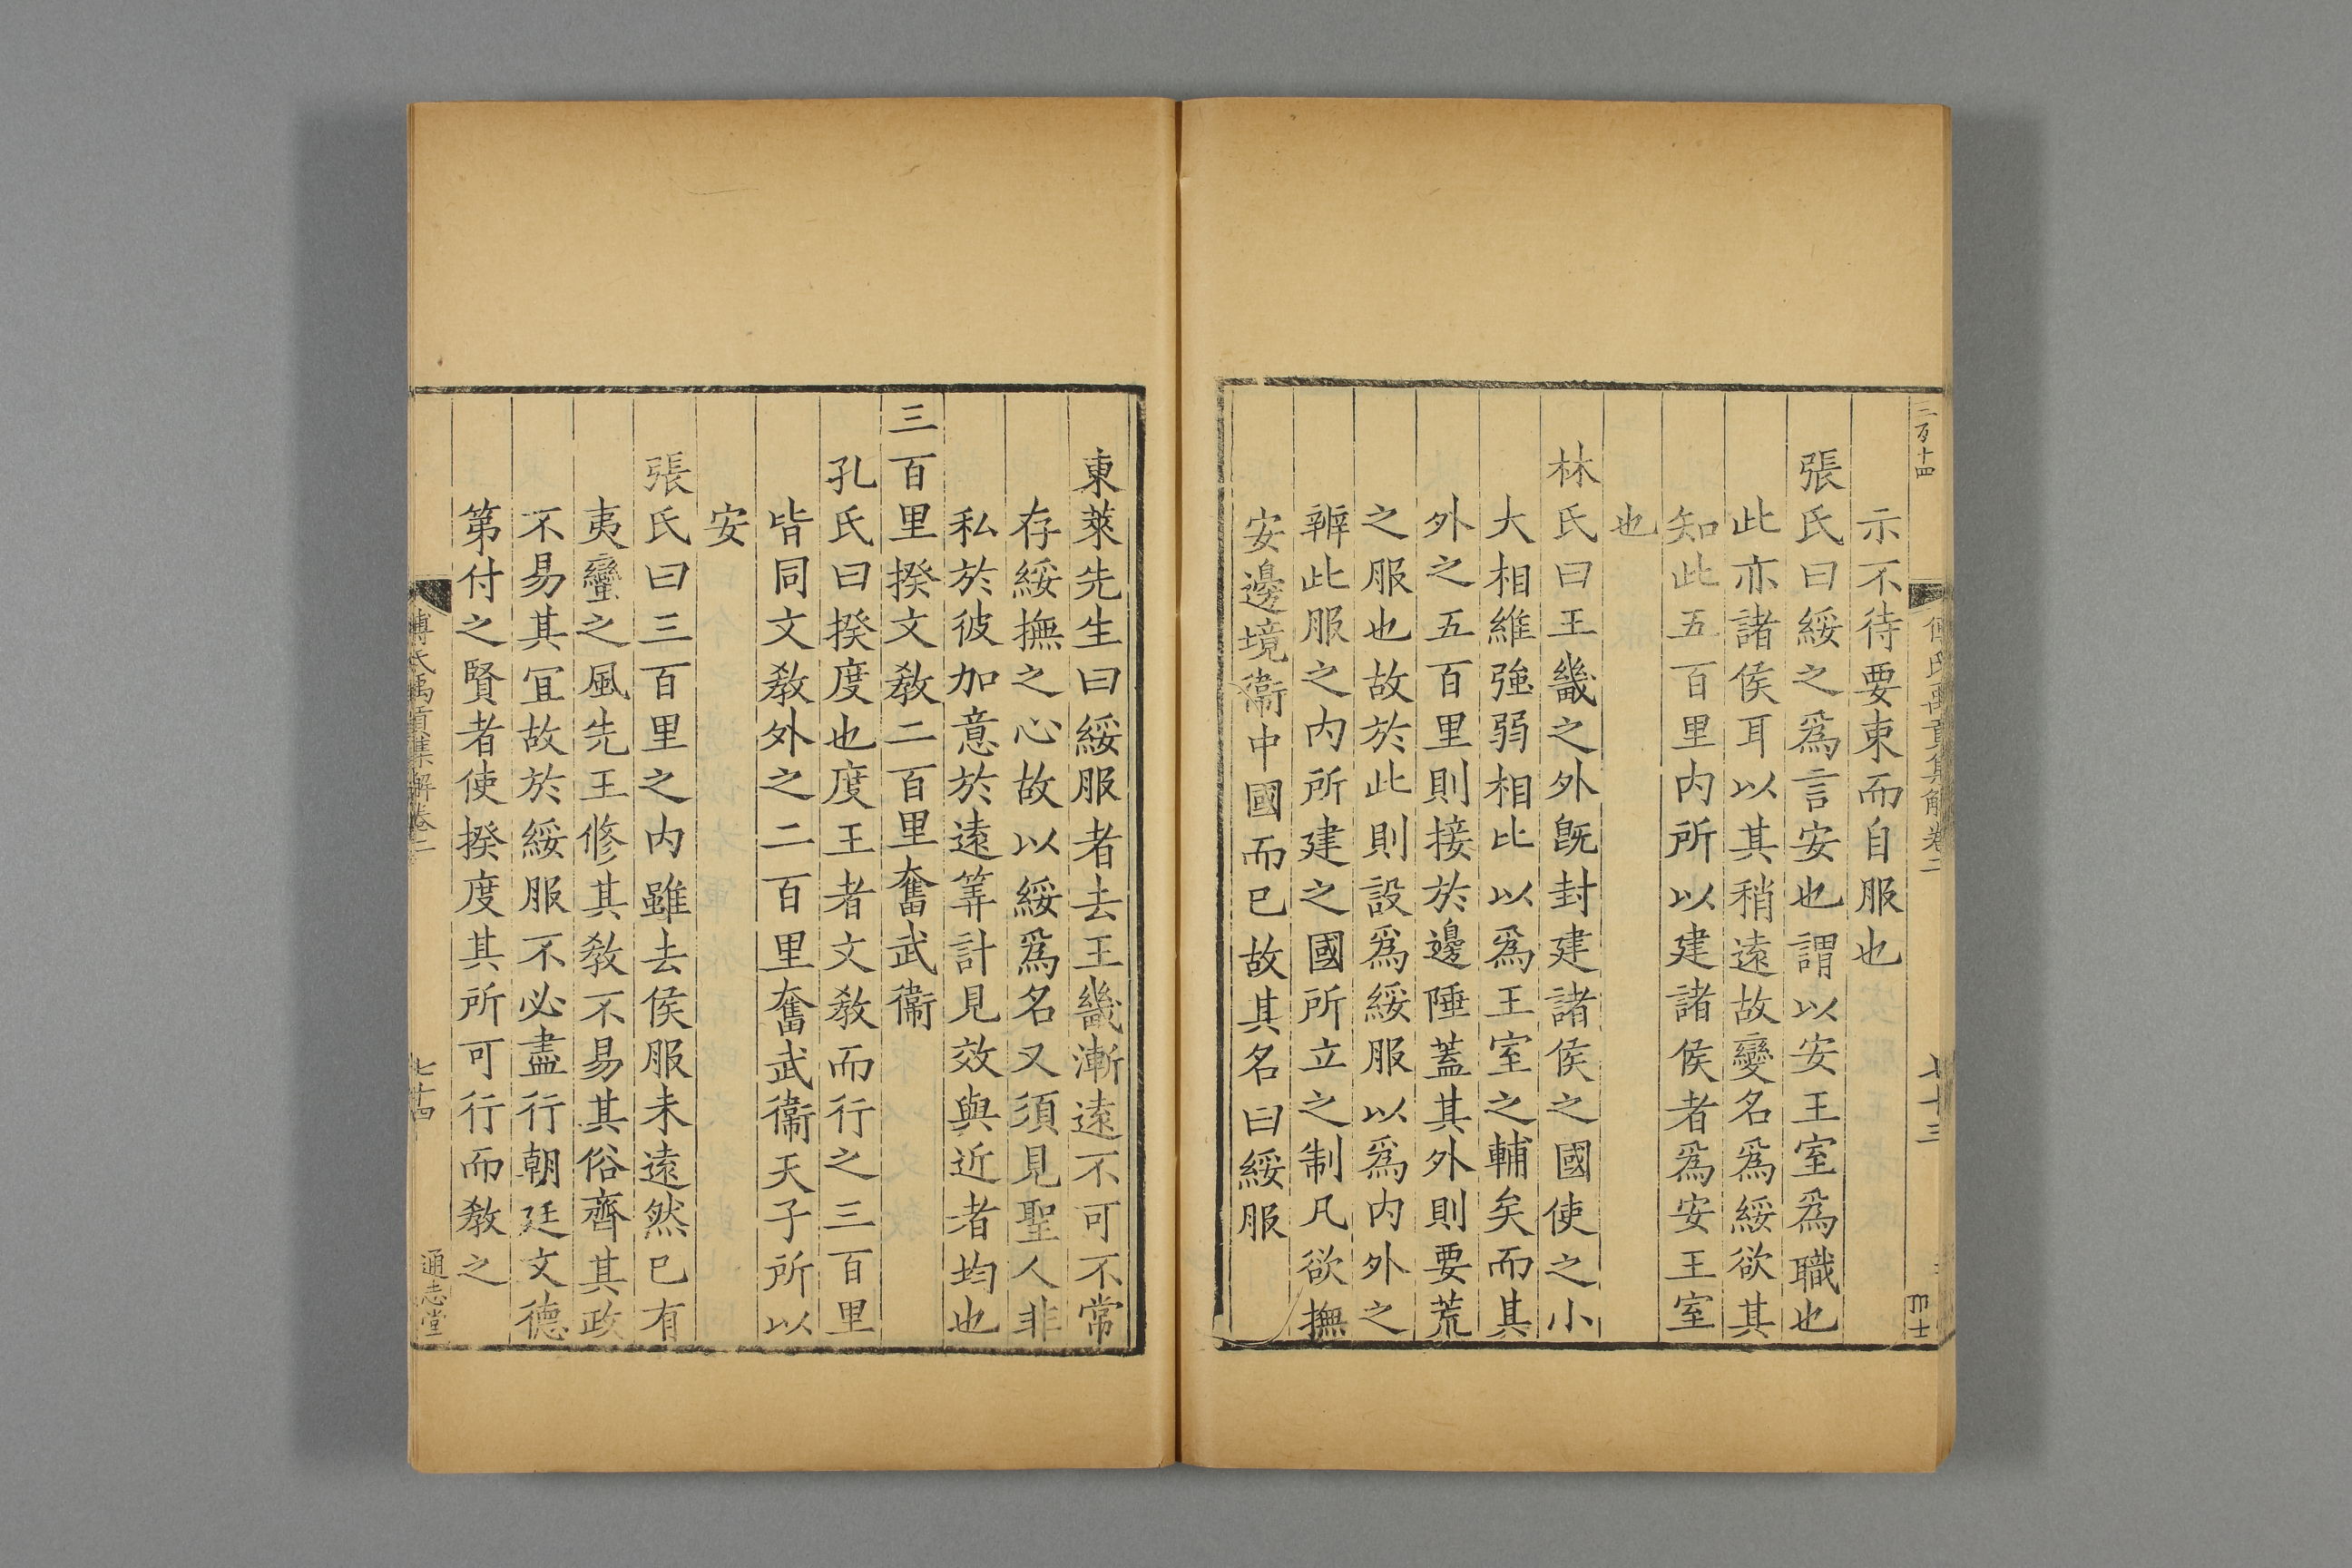 三百十四
傅氏禹貢集解卷二
七十三
示不待要束而自服也
張氏曰綏之爲言安也謂以安王室爲職也
此亦諸侯耳以其稍遠故變名爲綏欲其
知此五百里内所以建諸侯者爲安王室
也
林氏曰王畿之外旣封建諸侯之國使之小
大相維強弱相比以爲王室之輔矣而其
外之五百里則接於邊陲蓋其外則要荒
之服也故於此則設爲綏服以爲内外之
辨此服之内所建之國所立之制凡欲撫
安邊境衞中國而已故其名曰綏服
東萊先生曰綏服者去王畿漸遠不可不常
存綏撫之心故以綏爲名又須見聖人非
私於彼加意於遠筭計見效與近者均也
三百里揆文敎二百里奮武衞
孔氏曰揆度也度王者文敎而行之三百里
皆同文敎外之二百里奮武衞天子所以
安
張氏曰三百里之内雖去侯服未遠然已有
夷蠻之風先王修其敎不易其俗齊其政
不易其宜故於綏服不必盡行朝廷文德
第付之賢者使揆度其所可行而敎之
傅氏禹貢集解卷二
七十四
通志堂